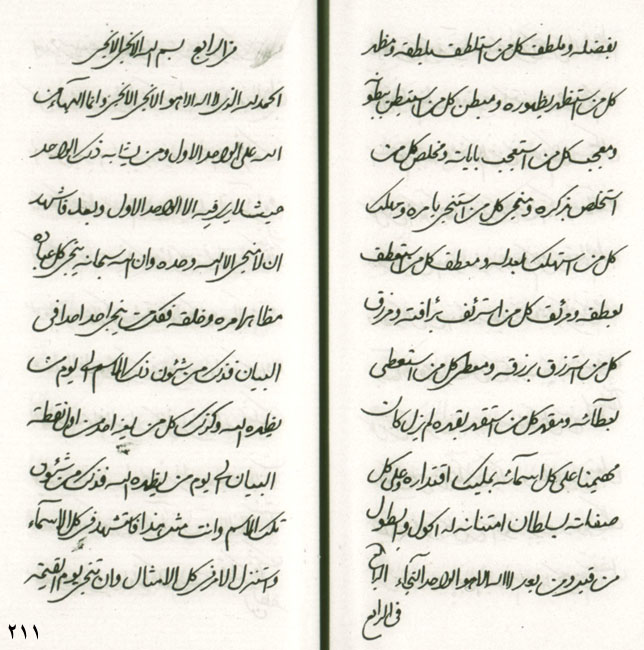 بفضله و ملطف كل من استلطف بلطفه و مظهر
كل من استظهر بظهوره و مبطن كل من استبطن ببطونه
و معجب كل من استعجب باياته و مخلص كل من
استخلص بذكره و منجى كل من استنجى بامره و مهلك
كل من استهلك بعدله و معطف كل من استعطف
بعطفه و مرئف كل من استرئف برأفته و مرزق
كل من استرزق برزقه و معطى كل من استعطى
بعطائه و مقدر كل من استقدر بقدره لم يزل كان
مهيمنا على كل اسمائه بمليك اقتداره و على كل
صفاته بسلطان امتنانه له الحول و الطول
من قبل و من بعد لا اله الا هو الواحد النجاء الباب
فى الرابع
الرابع بسم الله الانجى الانجى
الحمد لله الذى لا اله الا هو الانجى الانجى و انما البهاء من
الله على الواحد الاول و من يشابه ذلك الواحد
حيث لا يرى فيه الا الواحد الاول و بعد فاشهد
ان لا منجى الا الله وحده و ان الله سبحانه ينجى كل عباده
مظاهر امره و خلقه فكلما ينجى احد احدا فى
البيان فذلك من شئون ذلك الاسم الى يوم من
يظهره الله و كذلك كل من بعد من اول نقطة
البيان الى يوم من يظهره الله فذلك من شئون
تلك الاسم و انت مثل هذا فاشهد فى كل الاسماء
و استنزل الامر فى كل الامثال و ان تنجى يوم القيمة
٢١١